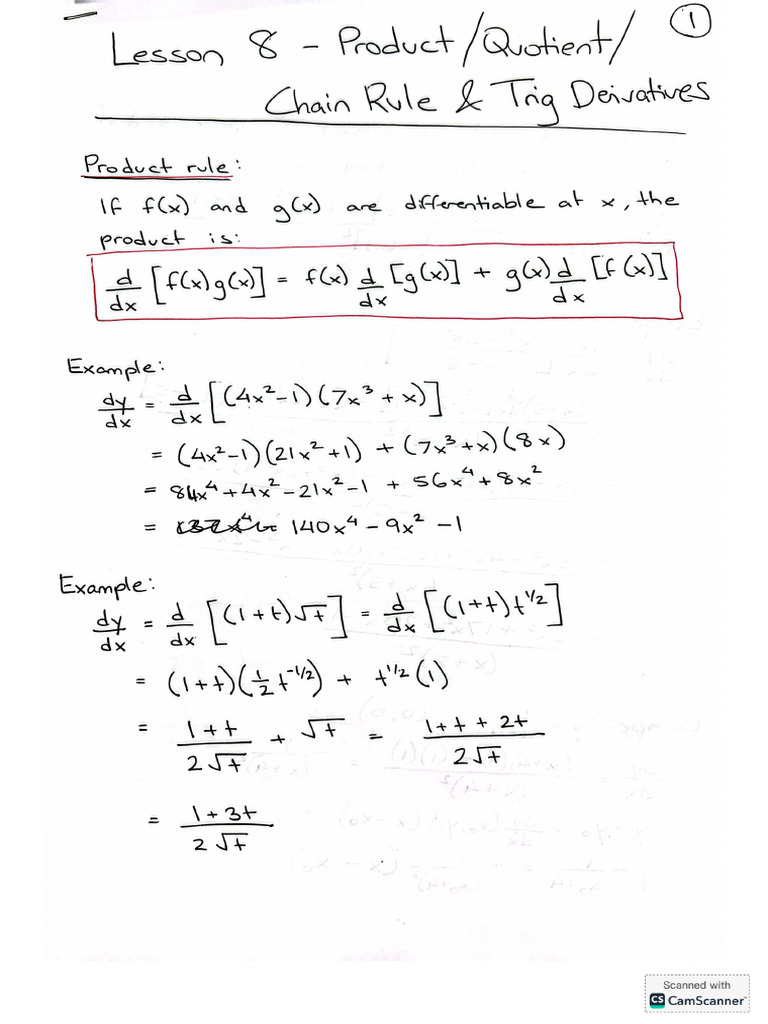 1
Lesson 8 - Product/Quotient/
Chain Rule & Trig Derivatives
Product rule:
If f(x) and g(x) are differentiable at x, the
product is:
d/dx [f(x)g(x)] = f(x) d/dx [g(x)] + g(x) d/dx [f(x)]
Example:
dy/dx = d/dx [(4x²-1)(7x³+x)]
= (4x²-1)(21x²+1) + (7x³+x)(8x)
= 84x⁴+4x²-21x²-1 + 56x⁴+8x²
= 140x⁴ - 9x² - 1
Example:
dy/dx = d/dx [(1+t)√t] = d/dx [(1+t)t^1/2]
= (1+t)(1/2 t^-1/2) + t^1/2 (1)
= (1+t)/(2√t) + √t = (1+t+2t)/(2√t)
= (1+3t)/(2√t)
Scanned with
CS CamScanner